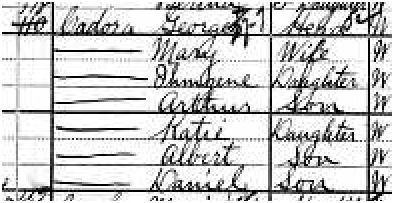 Cadora George Head W
Mary Wife W
Daughter W
Arthur Son W
Katie Daughter W
Albert Son W
Daniel Son W